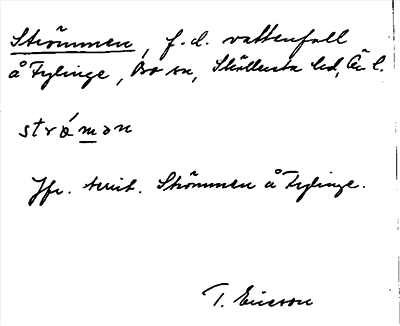 Strömmen, f.d. vattenfall
å Fylinge, Bo sn, Sköllersta hd, Är l.
strǿmən
Jfr. territ. Strömmen å Fylinge.
T. Ericsson